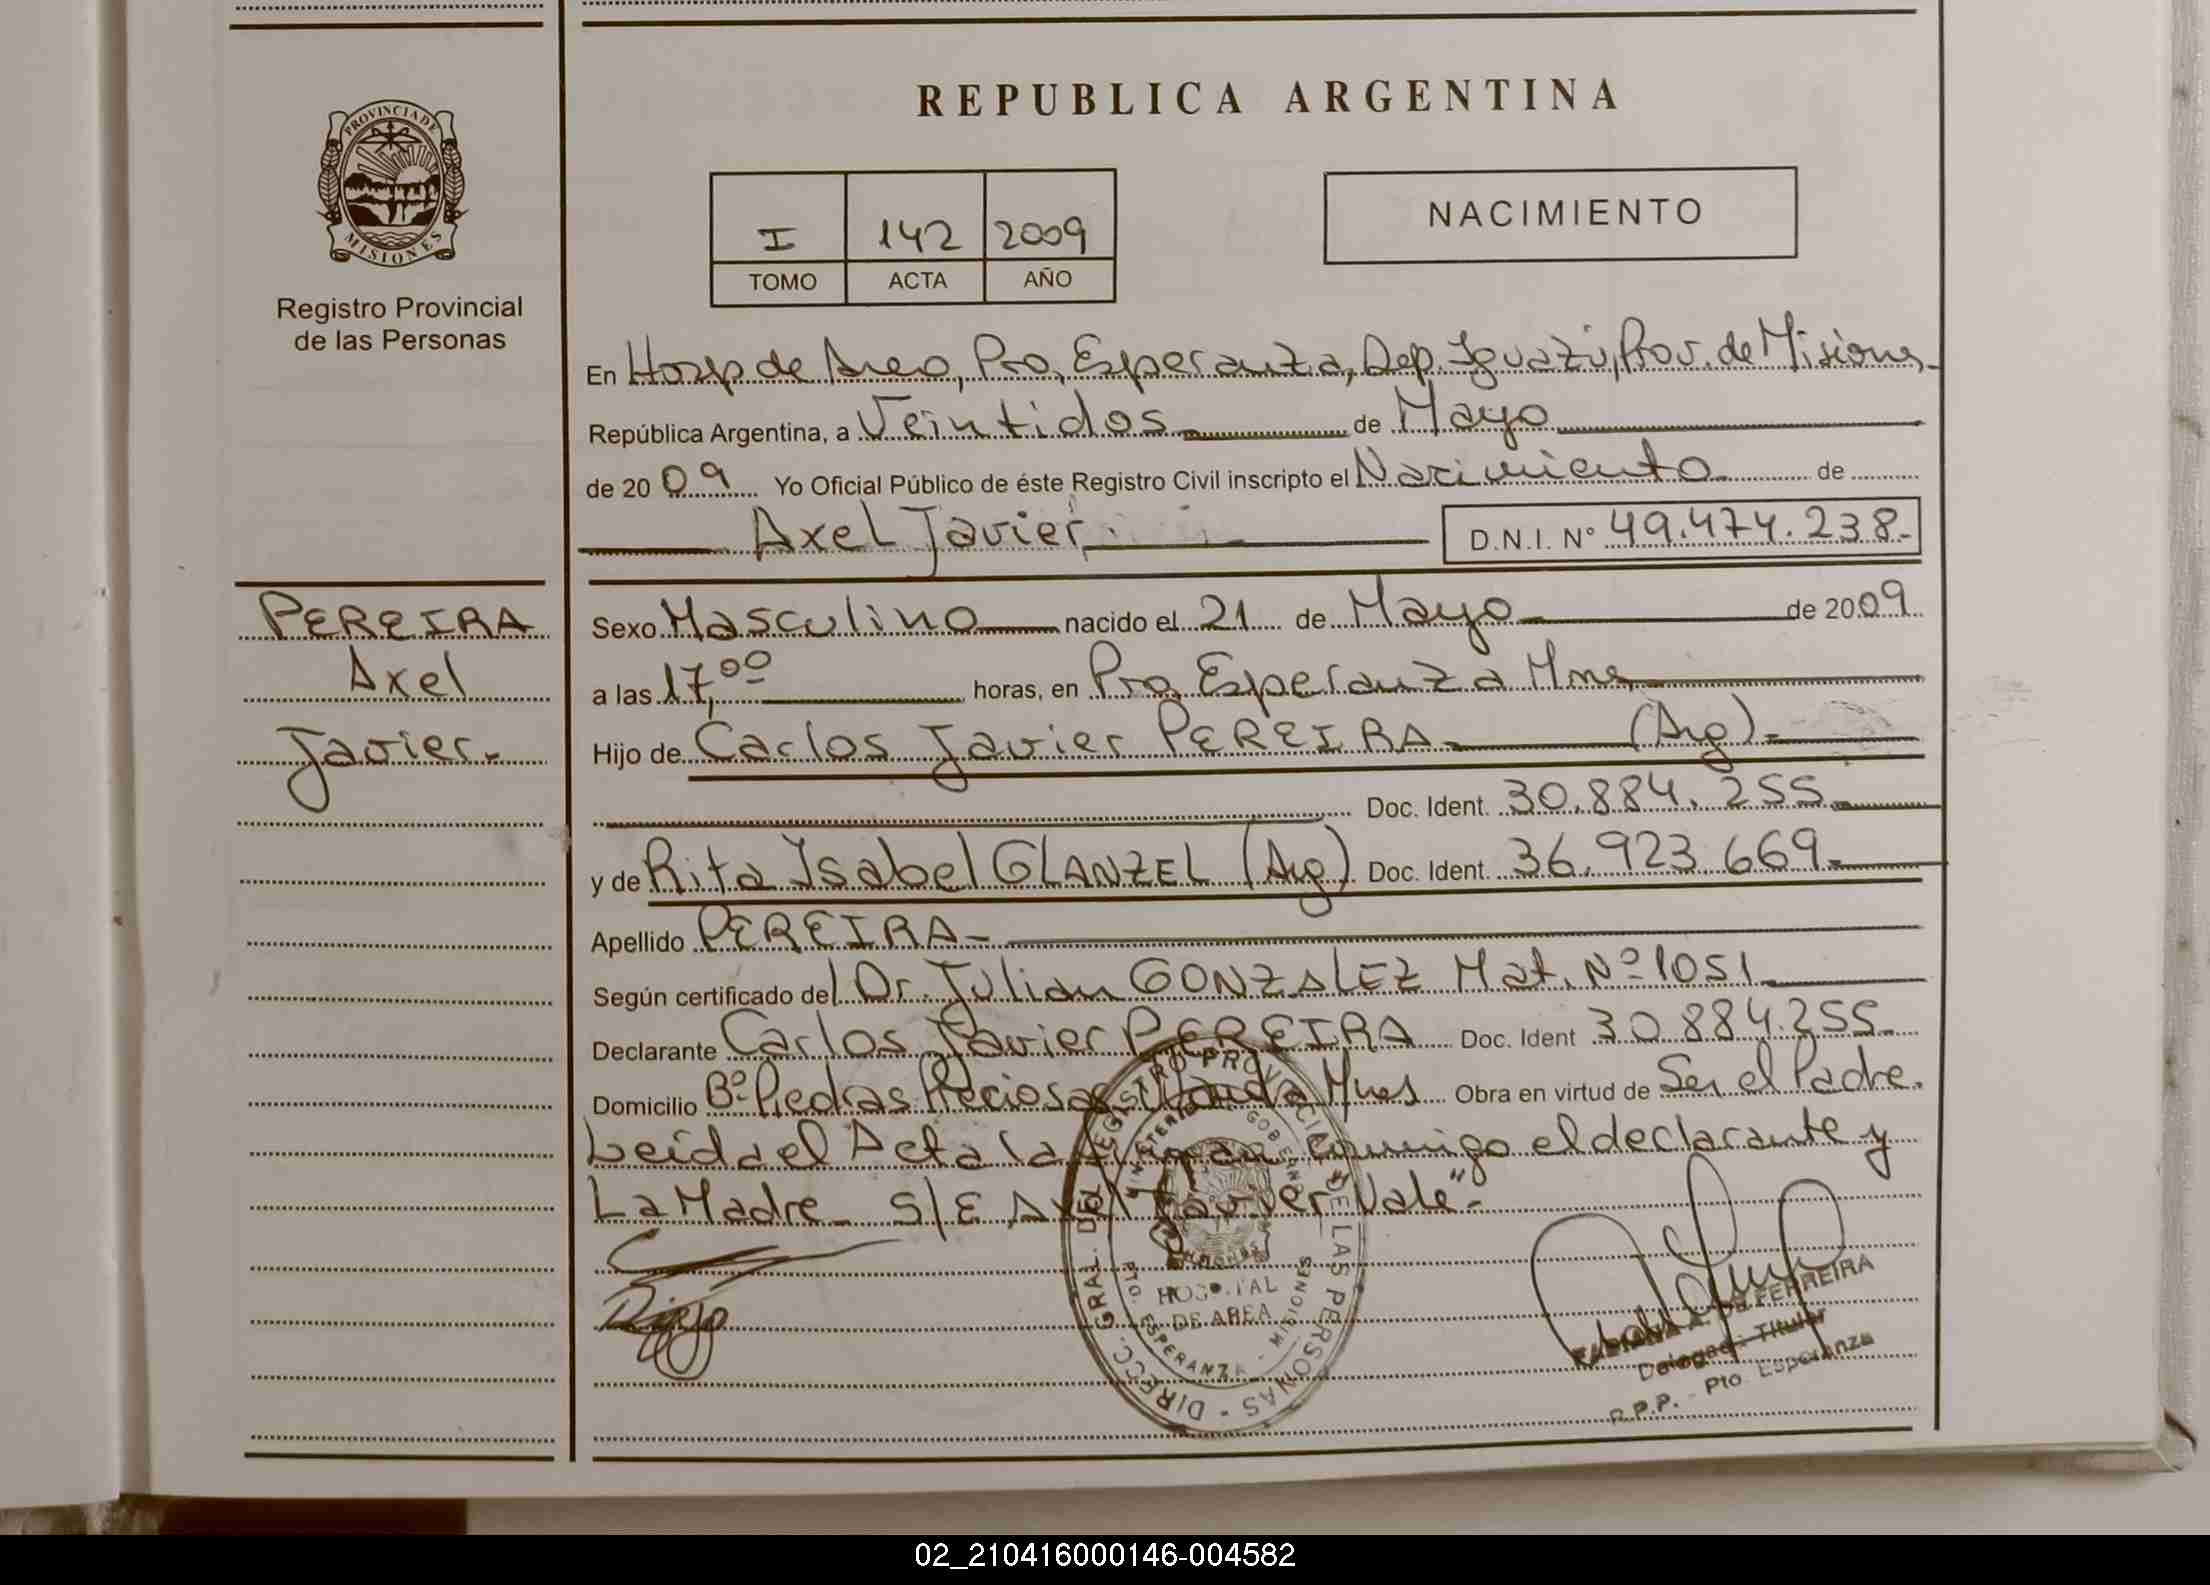 REPUBLICA ARGENTINA
PROVINCIA DE
MISIONES
Registro Provincial
de las Personas
I 142 2009
TOMO ACTA AÑO
NACIMIENTO
En Hosp de Area, Pto, Esperanza, Dep. Iguazú, Prov. de Misiones,-
República Argentina, a Veintidos de Mayo
de 2009 Yo Oficial Público de éste Registro Civil inscripto el Nacimiento de
Axel Javier. D.N.I. Nº 49.474.238.-
PEREIRA
Axel
Javier.-
Sexo Masculino nacido el 21 de Mayo de 2009
a las 17,00 horas, en Pto, Esperanza Mnes
Hijo de Carlos Javier PEREIRA.- (Arg).-
Doc. Ident. 30.884.255
y de Rita Isabel GLANZEL (Arg) Doc. Ident. 36.923.669.-
Apellido PEREIRA.-
Según certificado del Dr. Julian GONZALEZ Mat. Nº 1051
Declarante Carlos Javier PEREIRA Doc. Ident 30.884.255.-
Domicilio Bº Piedras Preciosas Wanda Mnes Obra en virtud de Ser el Padre.
Leida el Acta la firman conmigo el declarante y
La Madre S/E Axel Javier Vale".-
DIRECC. GRAL. DEL REGISTRO PROVINCIAL DE LAS PERSONAS
MINISTERIO GOBIERNO
MISIONES
HOSPITAL
DE AREA
PTO. ESPERANZA - MISIONES
FABIANA A. FERREIRA
Delegada Titular
R.P.P. - Pto Esperanza
02_210416000146-004582